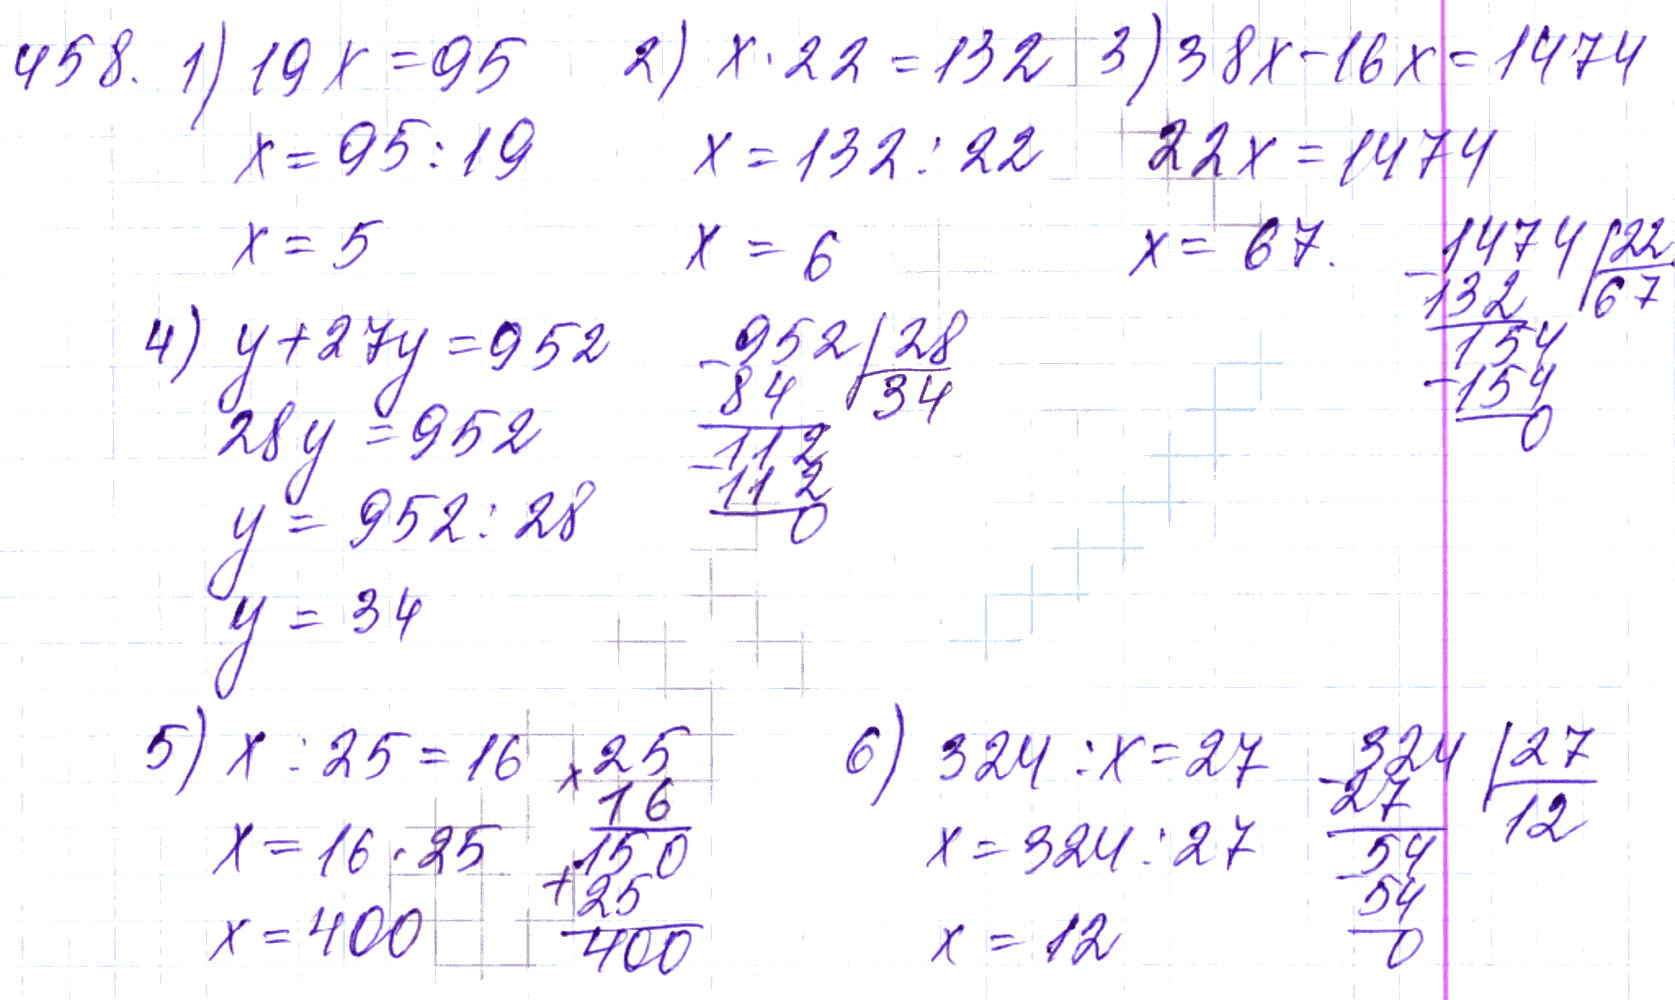 458. 1) 19x = 95
x = 95 : 19
x = 5
2) x · 22 = 132
x = 132 : 22
x = 6
3) 38x - 16x = 1474
22x = 1474
x = 67.
- 1474 | 22
132 | 67
154
- 154
0
4) y + 27y = 952
28y = 952
y = 952 : 28
y = 34
- 952 | 28
84 | 34
112
- 112
0
5) x : 25 = 16
x = 16 · 25
x = 400
x 25
16
150
+ 25
400
6) 324 : x = 27
x = 324 : 27
x = 12
- 324 | 27
27 | 12
54
- 54
0